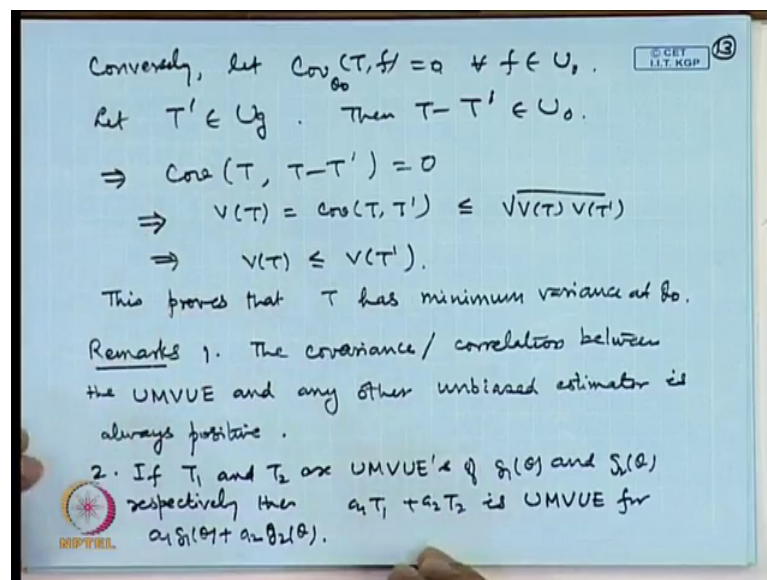 Conversely, let Cov_θ₀ (T, f) = 0 ∀ f ∈ U₀.
© CET
I.I.T. KGP
13
Let T' ∈ Ug . Then T - T' ∈ U₀.
⇒ Cov (T, T-T') = 0
⇒ V(T) = Cov(T, T') ≤ √V(T) V(T')
⇒ V(T) ≤ V(T').
This proves that T has minimum variance at θ₀.
Remarks 1. The covariance / correlation between
the UMVUE and any other unbiased estimator is
always positive.
2. If T₁ and T₂ are UMVUE's of g₁(θ) and g₂(θ)
respectively then a₁T₁ + a₂T₂ is UMVUE for
a₁g₁(θ) + a₂g₂(θ).
NPTEL